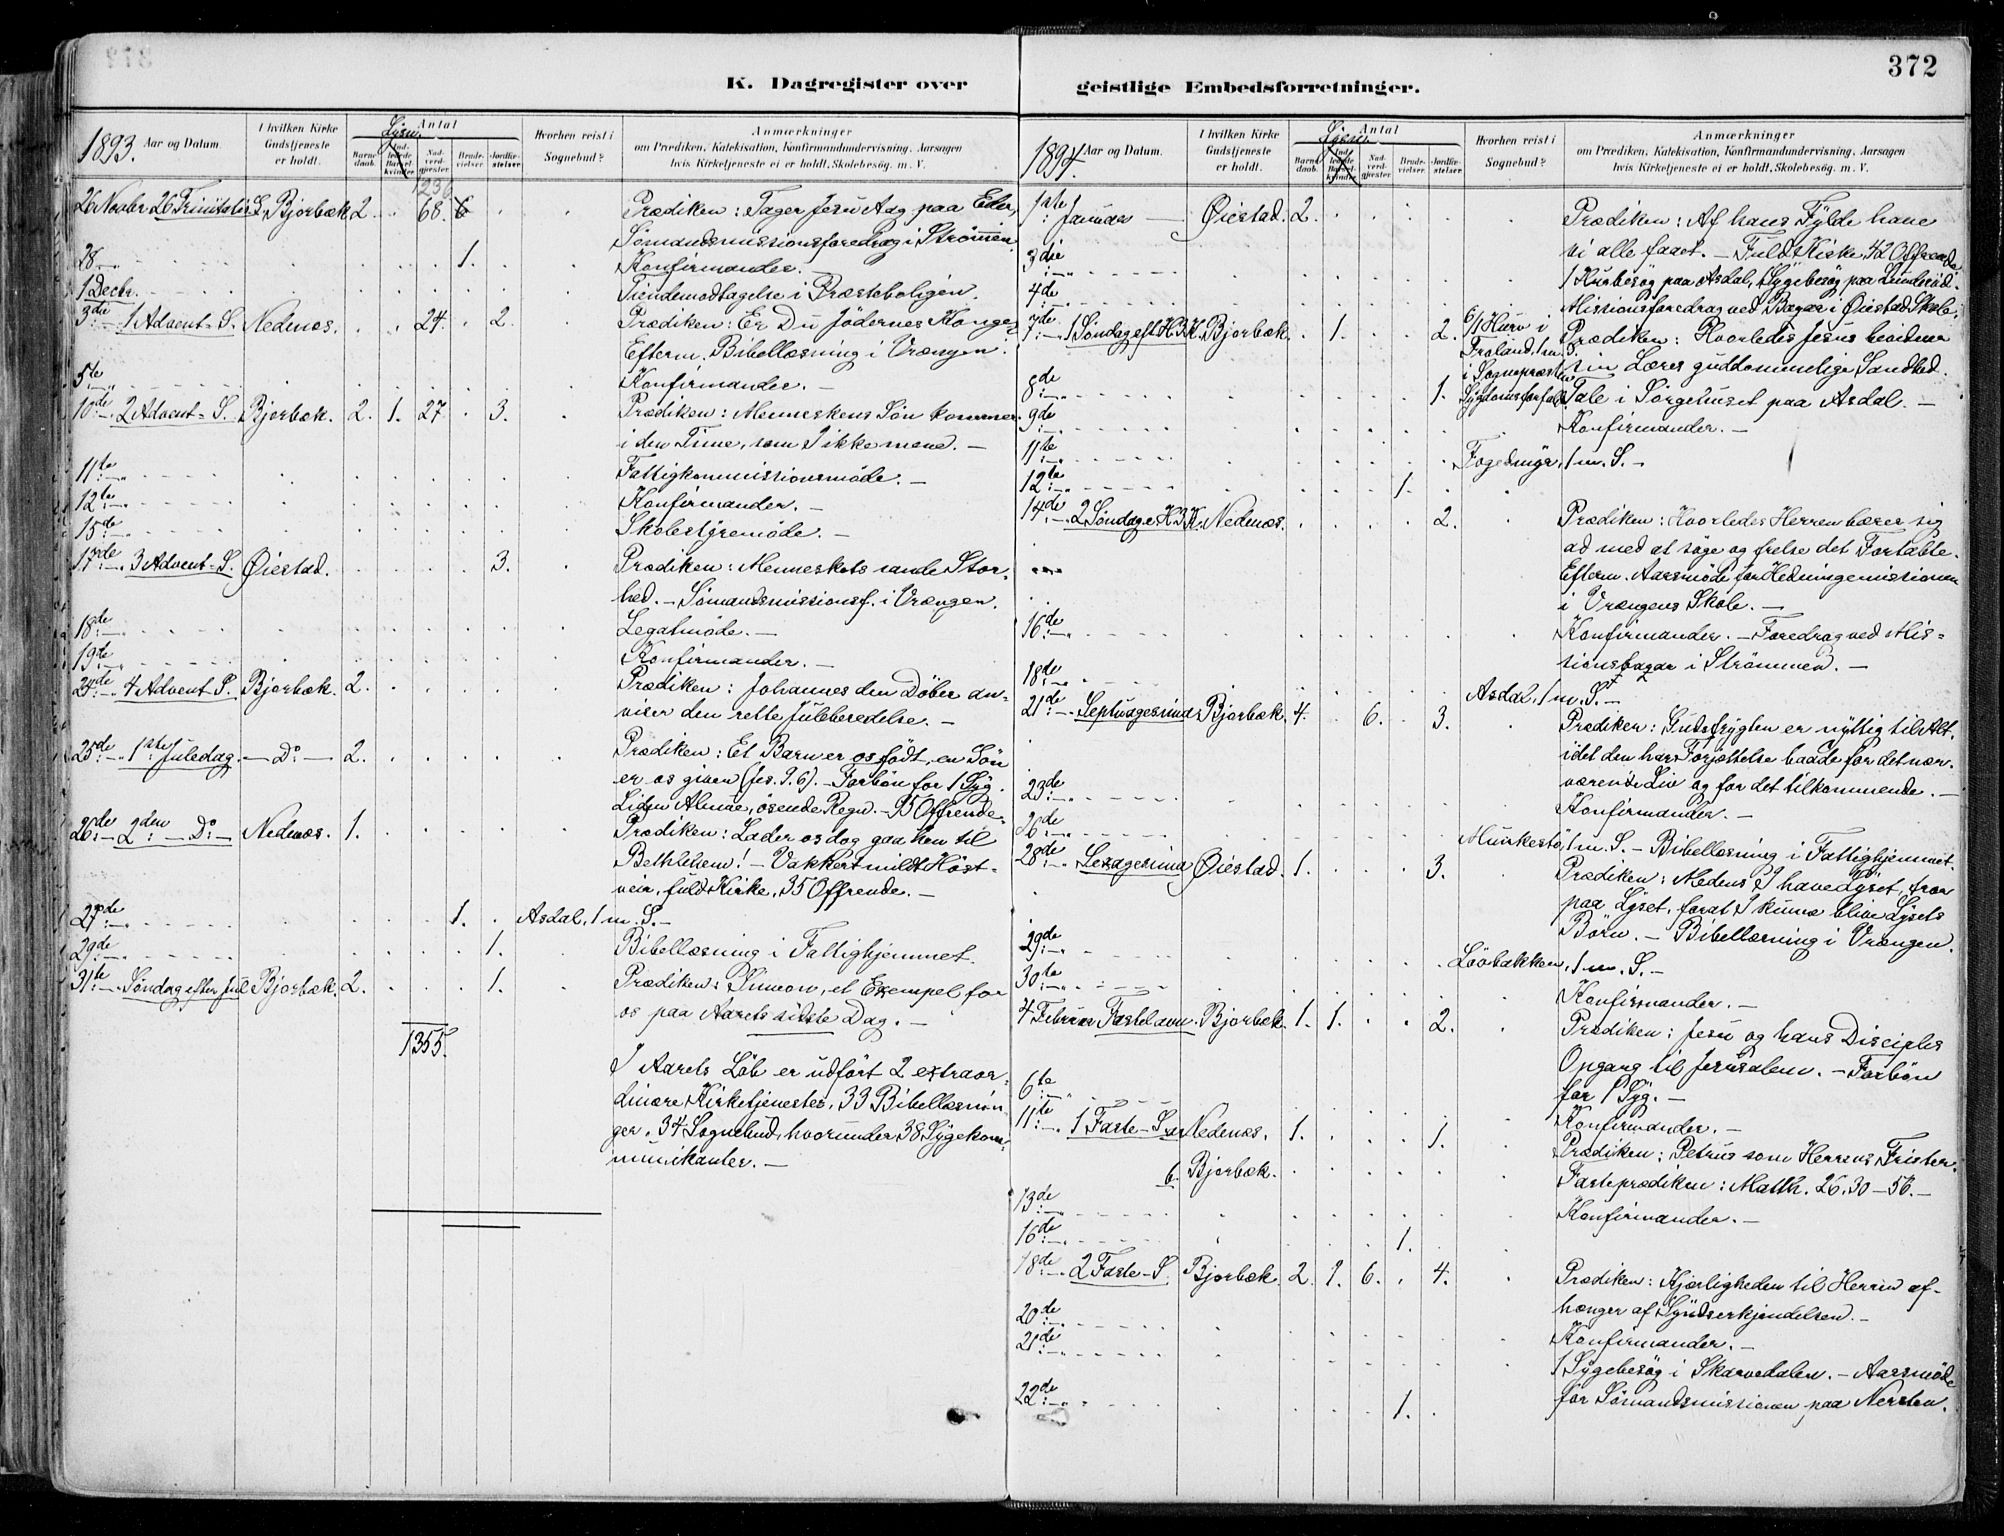 372
K. Dagregister over
geistlige Embedsforretninger.
1893. Aar og Datum.
I hvilken Kirke Gudstjeneste er holdt.
Antal
Barnedaab.
Indledede Barselkvinder
Nadverdgjester
Brudevielser.
Jordfæstelser.
Hvorhen reist i Sognebud?
Anmærkninger
om Prædiken, Katekisation, Konfirmandundervisning. Aarsagen
hvis Kirketjeneste ei er holdt, Skolebesøg. m. V.
1236
26 Novbr 26 Trinitatis S. Bjorbæk 2. . 68. 6 . . Prædiken: Tager Jesu Aag paa Eder,
Sømandsmissionsforedrag i Strømmen.
28 1. Konfirmander. —
1 Decbr. Tiendemodtagelse i Præsteboligen.
3die 1 Advent-S. Nedenæs. . . 24. . 2. Prædiken: Er Du Jødernes Konge?
Efterm. Bibellæsning i Vrængen.
5te Konfirmander. —
10de 2 Advent-S. Bjorbæk. 2. 1. 27. . 3. Prædiken: Menneskens Søn kommer
i den Time, som I ikke mene. —
11te Fattigkommissionsmøde. —
12te Konfirmander. —
15de Skolestyremøde. —
17de 3 Advent-S. Øiestad. 3. Prædiken: Menneskets sande Stor-
hed. — Sømandsmissionsf. i Vrængen.
18de Legatmøde. —
19de Konfirmander. —
24de 4 Advent S. Bjorbæk. 2. Prædiken: Johannes den Døber an-
viser den rette Juleberedelse. —
25de 1ste Juledag. — Do — 2. Prædiken: Et Barn er os født, en Søn
er os given (Jes. 9.6). — Forbøn for 1 Syg.
Liden Almue, øsende Regn. — 95 Offrende.
26de 2den — Do — Nedenæs. 1. Prædiken: Lader os dog gaa hen til
Bethlehem! — Vakkert mildt Høst-
veir, fuld Kirke, 35 Offrende. —
27de 1. . Asdal, 1 m. S. —
29de 1. Bibellæsning i Fattighjemmet.
31te Søndag efter Jul Bjorbæk. 2. 1. Prædiken: Simeon, et Exempel for
os paa Aarets sidste Dag. —
1355.
I Aarets Løb er udført 2 extraor-
dinære Kirketjenester, 33 Bibellæsnin-
ger, 34 Sognebud, hvorunder 38 Sygekom-
munikanter. —
1894. Aar og Datum.
I hvilken Kirke Gudstjeneste er holdt.
Antal
Barnedaab.
Indledede Barselkvinder
Nadverdgjester.
Brudevielser.
Jordfæstelser.
Hvorhen reist i Sognebud?
Anmærkninger
om Prædiken, Katekisation, Konfirmandundervisning. Aarsagen
hvis Kirketjeneste ei er holdt, Skolebesøg. m. V.
1ste Januar — Øiestad 2. Prædiken: Af hans Fylde have
vi alle faaet. — Fuld Kirke, 42 Offrende
3die 1 Husbesøg paa Asdal, 1 Sygebesøg paa Lunderød.
4de Missionsforedrag ved Bazar i Øiestad Skole.
7de 1 Søndag eft. H3K. Bjorbæk. . 1. . . 2. 6/1 Hurv i Prædiken: Hvorledes Jesus beviser
Froland, 1 m. S. sin Læres guddommelige Sandhed.
i Sogneprestens
8de 1. Sygdomsforfald. Tale i Sørgehuset paa Asdal. —
9de Konfirmander. —
11te Fogedmyr, 1 m. S. —
12te 1.
14de 2 Søndag e. H3K. Nedenæs. 2. Prædiken: Hvorledes Herren bærer sig
ad med at søge og frelse det Fortabte.
Efterm. Aarsmøde for Hedningemissionen
i Vrængens Skole. —
16de Konfirmander. — Foredrag ved Mis-
sionsbazar i Strømmen. —
18de Asdal, 1 m. S. —
21de Septuagesima Bjorbæk. 4. . 6. . 3. Prædiken: Gudsfrygten er nyttig til Alt,
idet den har Forjættelse baade for det nær-
værende Liv og for det tilkommende. —
23de Konfirmander. —
26de 1 m. S. — Bibellæsning i Fattighjemmet.
28de Sexagesima Øiestad. 1. 3. Prædiken: Medens I have Lyset, troer
paa Lyset, forat I kunne blive Lysets
Børn. — Bibellæsning i Vrængen.
29de Løvbakken, 1 m. S. —
30te Konfirmander. —
4 Februar Fastelavn. Bjorbæk. 1. 1. . . 2. Prædiken: Jesu og hans Disciples
Opgang til Jerusalem. — Forbøn
for 1 Syg. —
6te Konfirmander. —
11te 1 Faste-S. Nedenæs. 1. 1. Prædiken: Petrus som Herrens Frister.
6. Bjorbæk. Fasteprædiken: Matth. 26.30–56. —
13de Konfirmander. —
16de 1.
18de 2 Faste-S. Bjorbæk. 2. 1. 6. . 4. Prædiken: Kjærligheden til Herren af-
hænger af Syndserkjendelsen. —
20de Konfirmander. —
21de 1 Sygebesøg i Skarvedalen. — Aarsmøde
22de 1. for Sømandsmissionen paa Nersten.